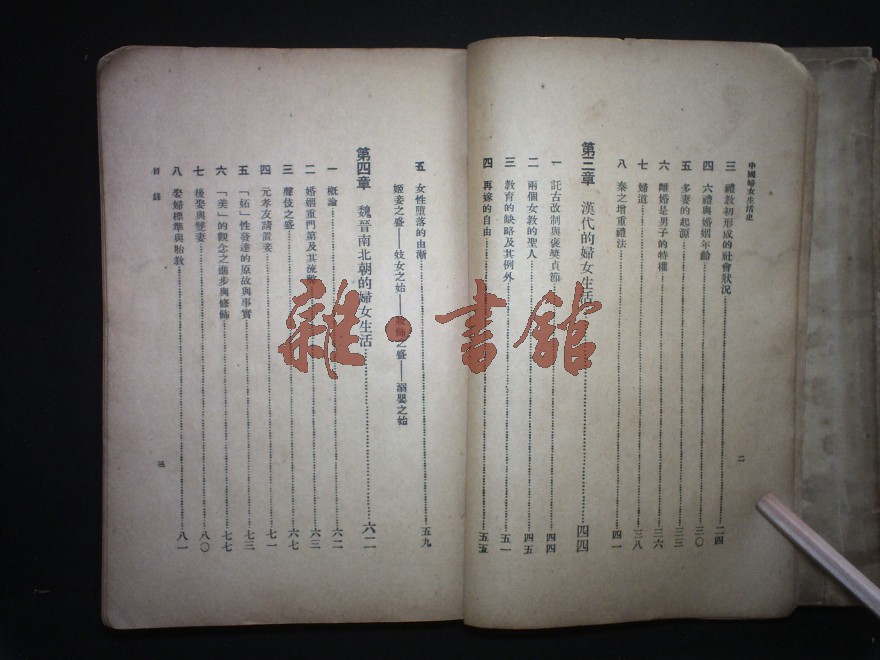 中國婦女生活史
三 禮教初形成的社會狀況 二四
四 六禮與婚姻年齡 三〇
五 多妻的起源 三三
六 離婚是男子的特權 三六
七 婦道 三八
八 秦之增重禮法 四一
第三章 漢代的婦女生活 四四
一 託古改制與褒奬貞節 四四
二 兩個女教的聖人 四五
三 教育的缺略及其例外 五一
四 再嫁的自由 五五
二
五 女性墮落的由漸 五九
姬妾之盛——妓女之始——之盛——溺嬰之始
第四章 魏晉南北朝的婦女生活 六二
一 概論 六二
二 婚姻重門第及其流 六三
三 聲伎之盛 六七
四 元孝友請置妾 七一
五 「妬」性發達的原故與事實 七三
六 「美」的觀念之進步與修飾 七七
七 後娶與雙妻 八〇
八 娶婦標準與胎教 八一
目錄
三
雜·書館